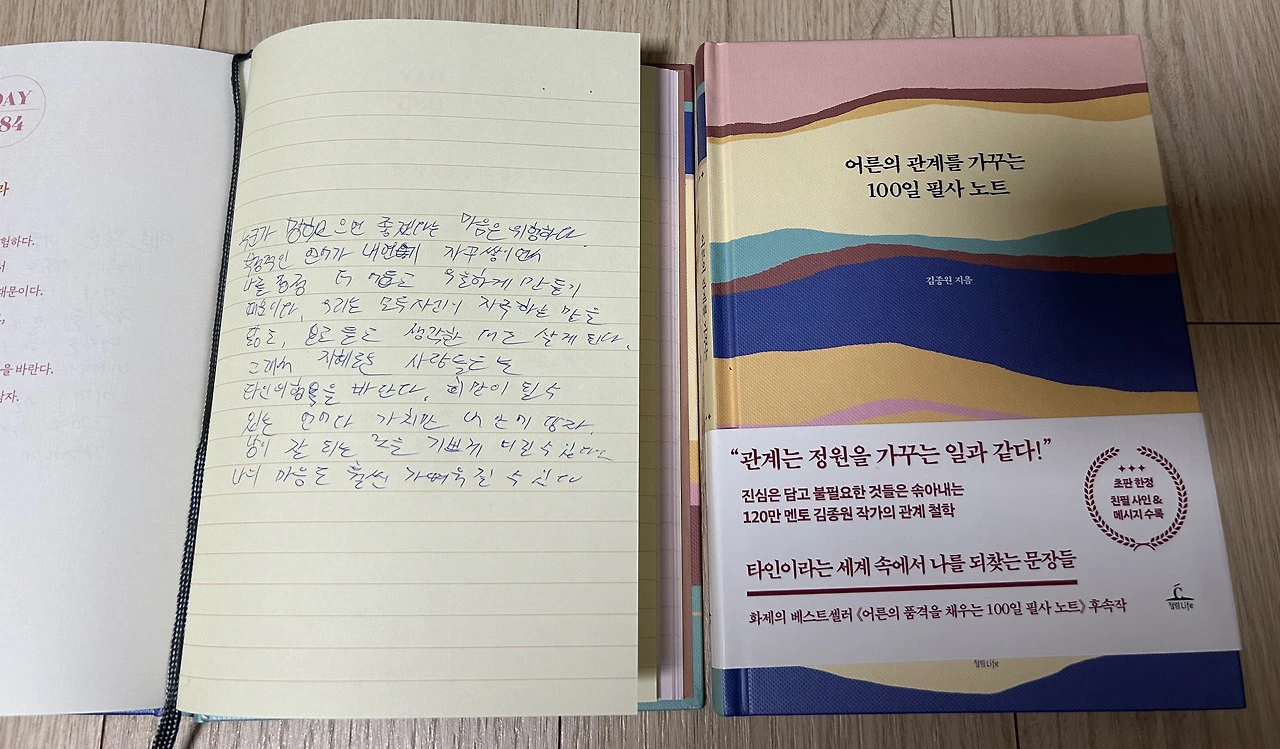 DAY
84
라
험하다.
서
때문이다.
을 바란다.
담자.
누군가 망했으면 좋겠다는 마음은 위험하다.
부정적인 언어가 내면에 자꾸 쌓이면서
나를 점점 더 어둡고 우울하게 만들기
때문이다. 우리는 모두 자신이 자주하는 말을
닮고, 보고 듣고 생각한 대로 살게 된다.
그래서 지혜로운 사람들도 늘
타인의 행운을 바란다. 희망이 될 수
있는 언어다 가치만 내 안에 담자.
남이 잘 되는 것을 기쁘게 여길 수 있다면
나의 마음도 훨씬 가벼워질 수 있다
어른의 관계를 가꾸는
100일 필사 노트
김종원 지음
“관계는 정원을 가꾸는 일과 같다!”
진심은 담고 불필요한 것들은 솎아내는
120만 멘토 김종원 작가의 관계 철학
초판 한정
친필 사인 &
메시지 수록
타인이라는 세계 속에서 나를 되찾는 문장들
화제의 베스트셀러 《어른의 품격을 채우는 100일 필사 노트》 후속작
청림Life
청림Life